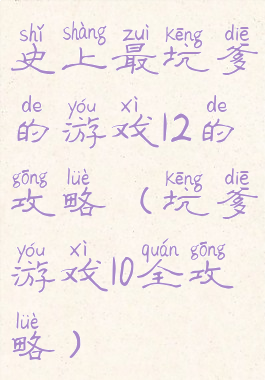 shǐ shàng zuì kēng diē
史上最坑爹
de yóu xì de
的游戏12的
gōng lüè kēng diē
攻略（坑爹
yóu xì quán gōng
游戏10全攻
lüè
略）